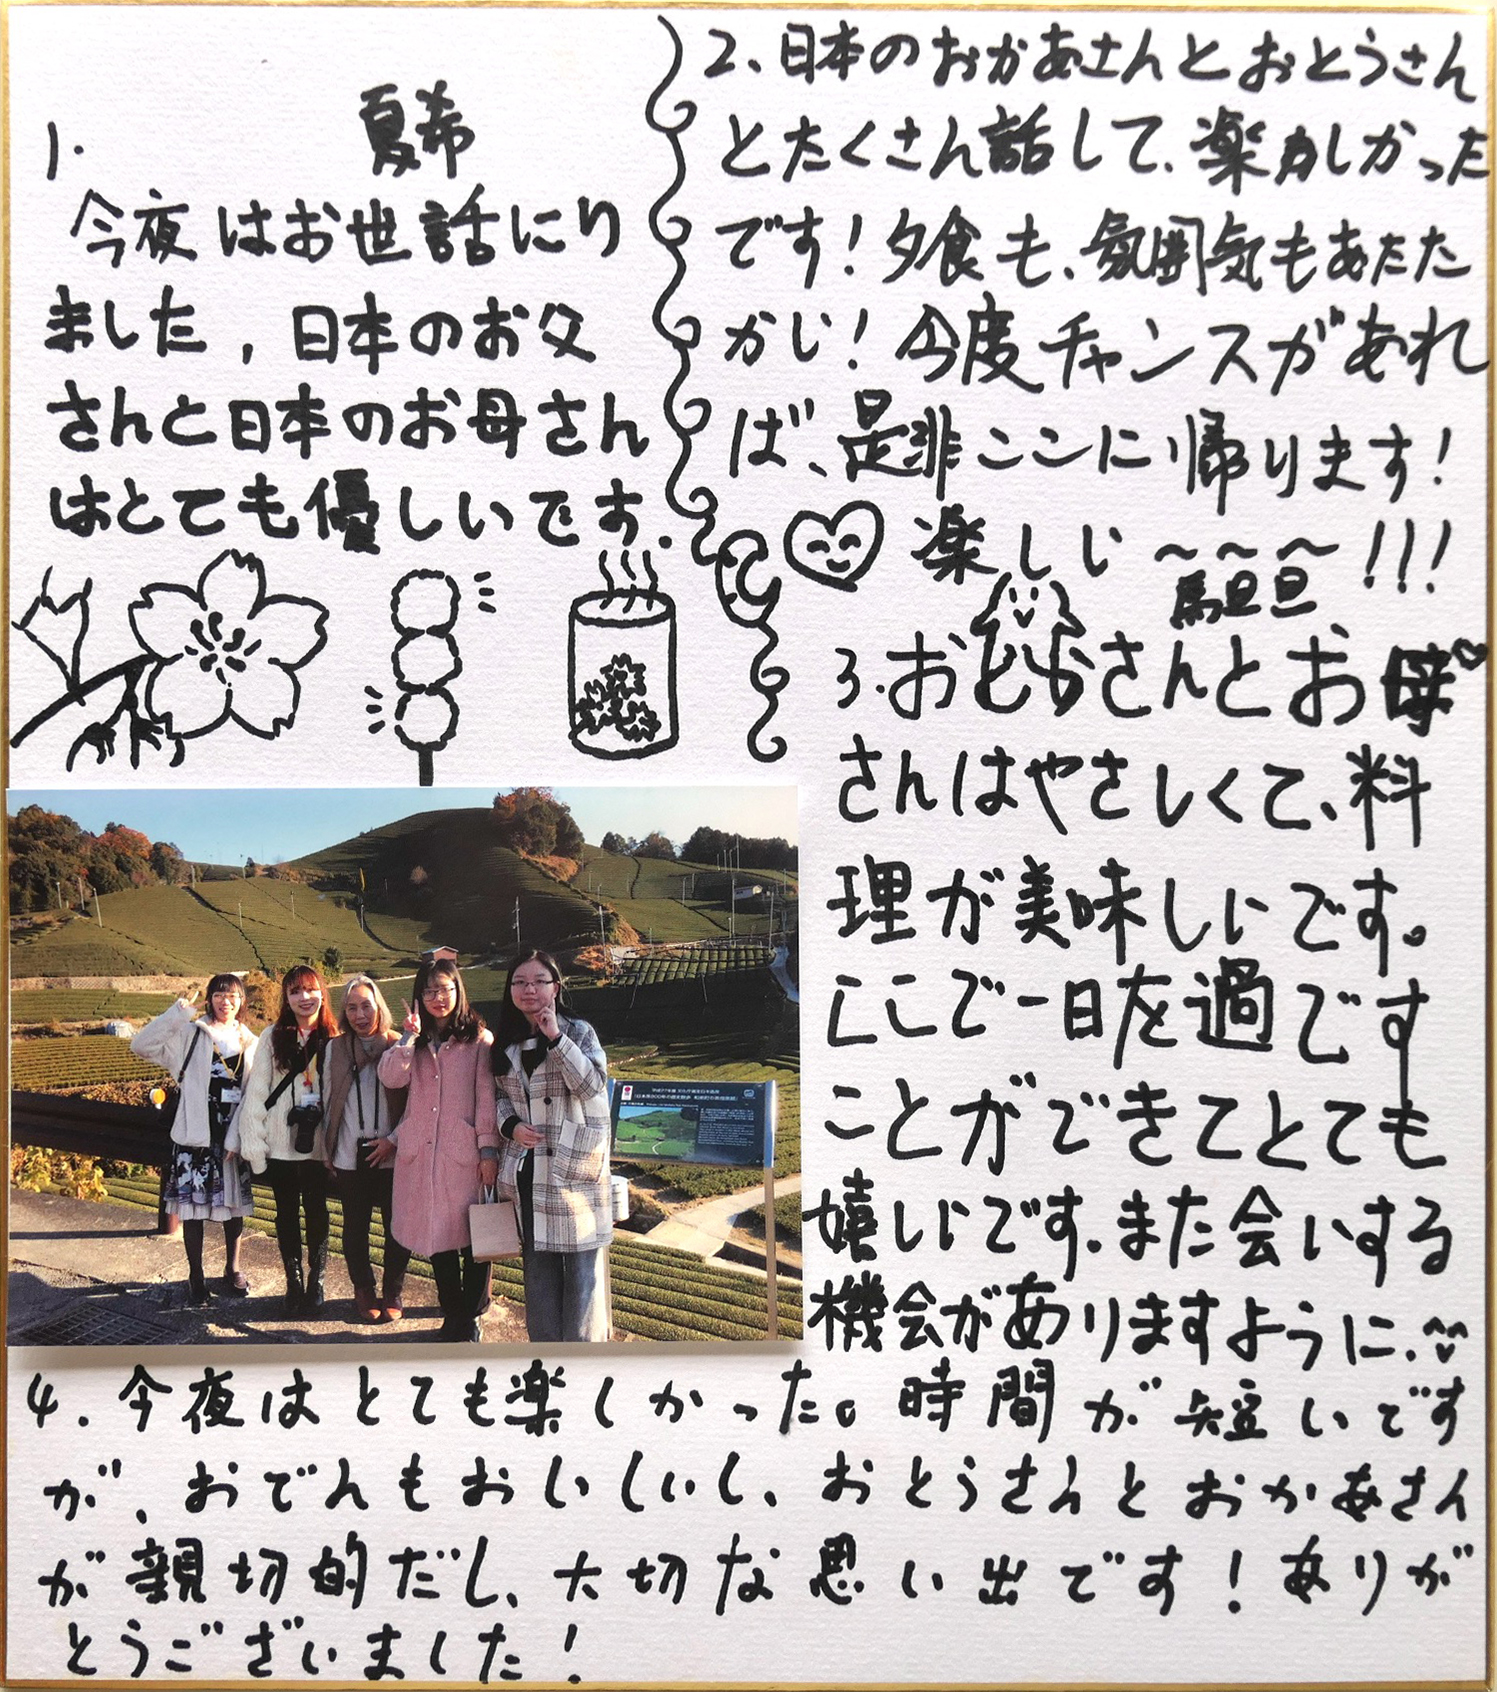 1.
夏希
今夜はお世話にり
ました，日本のお父
さんと日本のお母さん
はとても優しいです.
2、日本のおかあさんとおとうさん
とたくさん話して、楽しかった
です！夕食も、雰囲気もあたた
かい！今度チャンスがあれ
ば、是非ここに帰ります！
楽しい〜〜〜!!!
3.おとおさんとお母
さんはやさしくて、料
理が美味しいです。
ここで一日を過です
ことができてとても
嬉しいです.また会いする
機会がありますように.
4.今夜はとても楽しかった。時間が短いです
が、おでんもおいしいし、おとうさんとおかあさん
が親切的だし、大切な思い出です！ありが
とうございました！